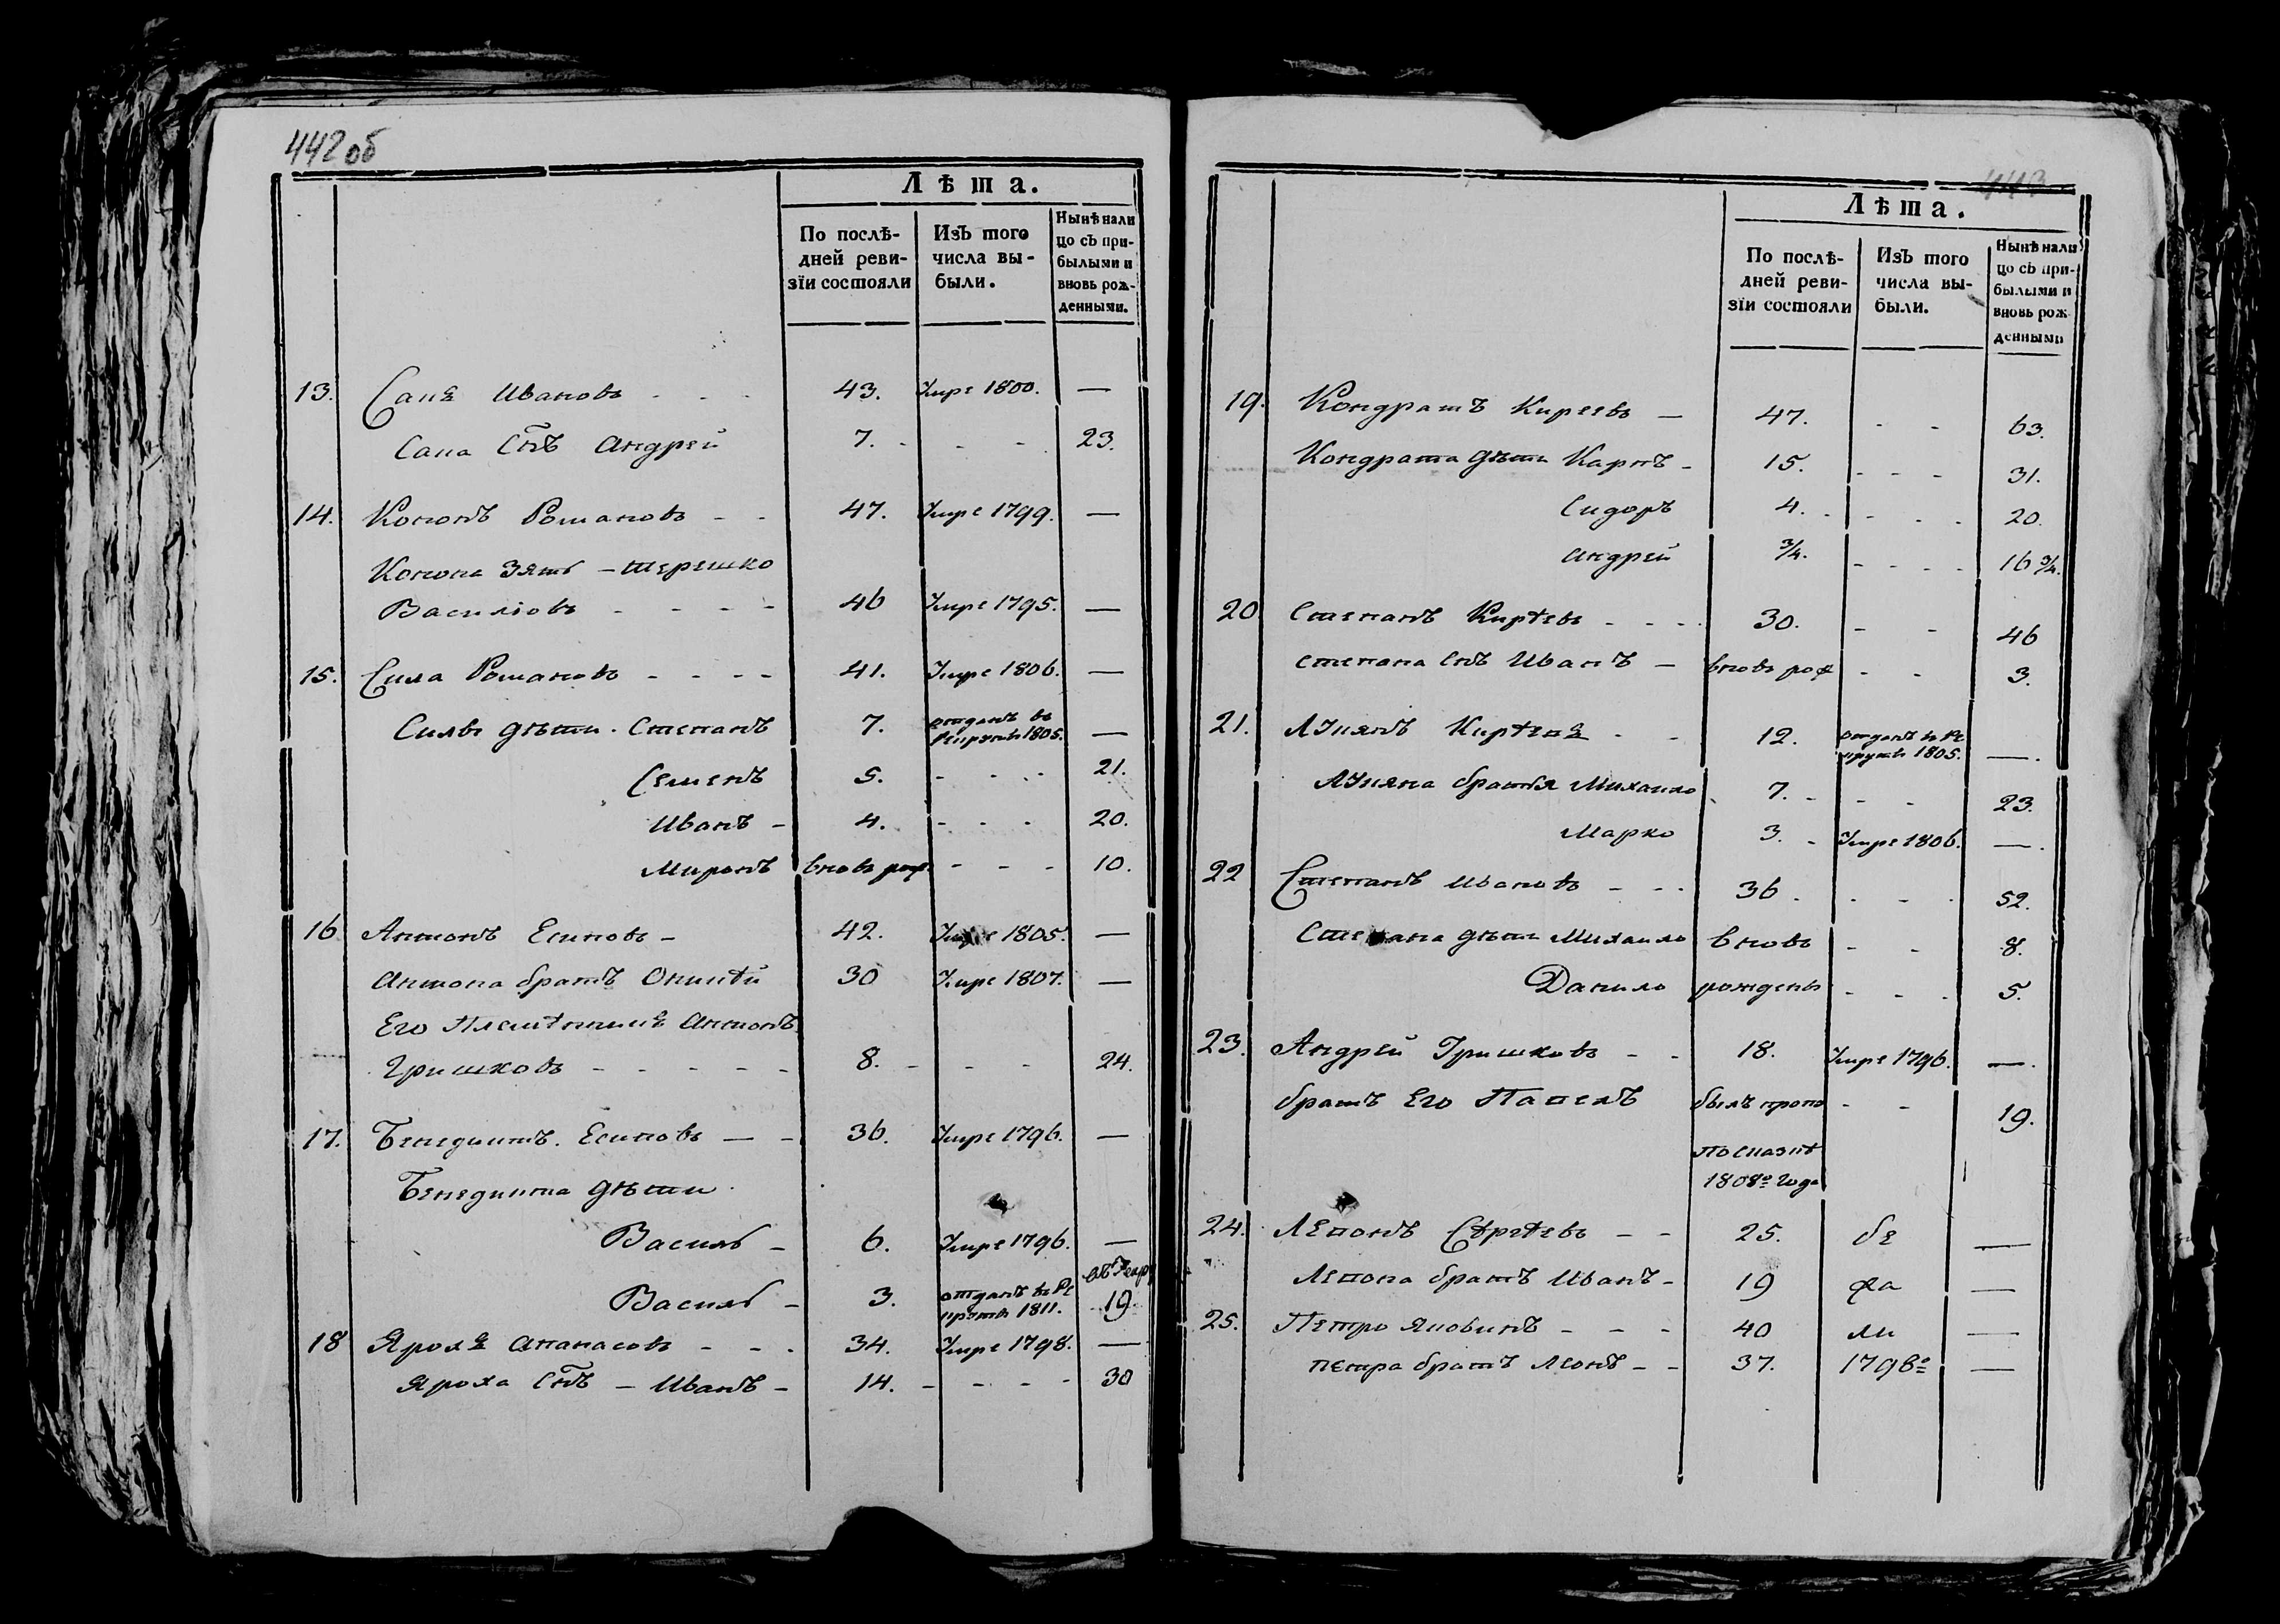 442 об
Лѣта.
По послѣ-
дней реви-
зїи состояли
Изъ того
числа вы-
были.
Нынѣ нали
цо съ при-
былыми и
вновь рож-
денными.
13. Сапъ Ивановъ - - - 43. Умре 1800. —
Сапа Снъ Андрей 7. - - - 23.
14. Кононъ Романовъ - - 47. Умре 1799. —
Конона Зять - терешко
Василіовъ - - - - 46 Умре 1795. —
15. Сила Романовъ - - - - 41. Умре 1806. —
Силы дѣти. Степанъ 7. отданъ въ
Рекруты 1805. —
Семенъ 5. - - - 21.
Иванъ - 4. - - - 20.
Миронъ вновь рож. - - - 10.
16 Антонъ Есиповъ - 42. Умре 1805. —
Антона братъ 30 Умре 1807. —
Его Племѣнникъ Антонъ
Гришковъ - - - - - 8. - - - 24.
17. Бенедиктъ. Есиповъ — - 36. Умре 1796. —
Бенедикта дѣти.
Василь - 6. Умре 1796. —
Василь - 3. отданъ въ Ре
круты 1811. 19
18 Ярохъ Апанасовъ - - . 34. Умре 1798. —
Яроха Снъ - Иванъ - 14. - - - - 30
443
Лѣта.
По послѣ-
дней реви-
зїи состояли
Изъ того
числа вы-
были.
Нынѣ нали
цо съ при-
былыми и
вновь рож
денными
19. Кондратъ Киреевъ — 47. - - 63.
Кондрата дѣти Карпъ - 15. - - - 31.
Сидоръ 4. - - - - 20.
Андрей 3/4. - - - - 16 3/4.
20 Степанъ Кирѣевъ - - - 30. - - 46
степана снъ Иванъ — вновь рож - - 3.
21. Лукянъ Кирѣевъ - - 12. отданъ в Ре
круты 1805. —.
Лукяна братья Михаило 7. - - - 23.
Марко 3. - Умре 1806. —.
22 Степанъ Ивановъ - - - 36. - - - 52.
Степана дѣти Михаило вновь - - 8.
Данило рождены - - - 5.
23. Андрей Гришковъ - - 18. Умре 1796. —.
братъ Его Павелъ былъ пропи - - 19.
по сказкѣ
1808го Года
24. Леонъ Сѣргѣевъ - - 25. бе —
братъ Иванъ - 19 жа —
25. Петро Яковинъ - - - 40 ли —
петра братъ Леонъ - - 37. 1796го —